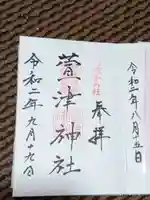 令和二年八月五日
奉拝
萱津神社
令和二年九月十九日